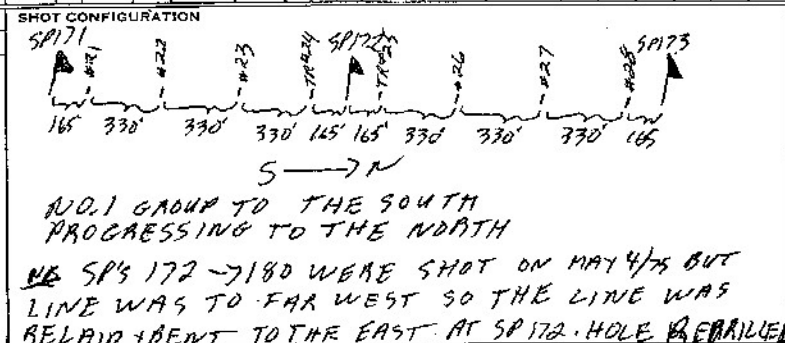 SHOT CONFIGURATION
SP171 #21 #22 #23 TR#24 SP172 TR#25 #26 #27 #28 SP173
165 330' 330' 330' 165' 165' 330 330' 330' 165
S → N
NO.1 GROUP TO THE SOUTH
PROGRESSING TO THE NORTH
NB SP'S 172 → 180 WERE SHOT ON MAY 4/75 BUT
LINE WAS TO FAR WEST SO THE LINE WAS
RELAID & BENT TO THE EAST AT SP 172. HOLE REDRILLED